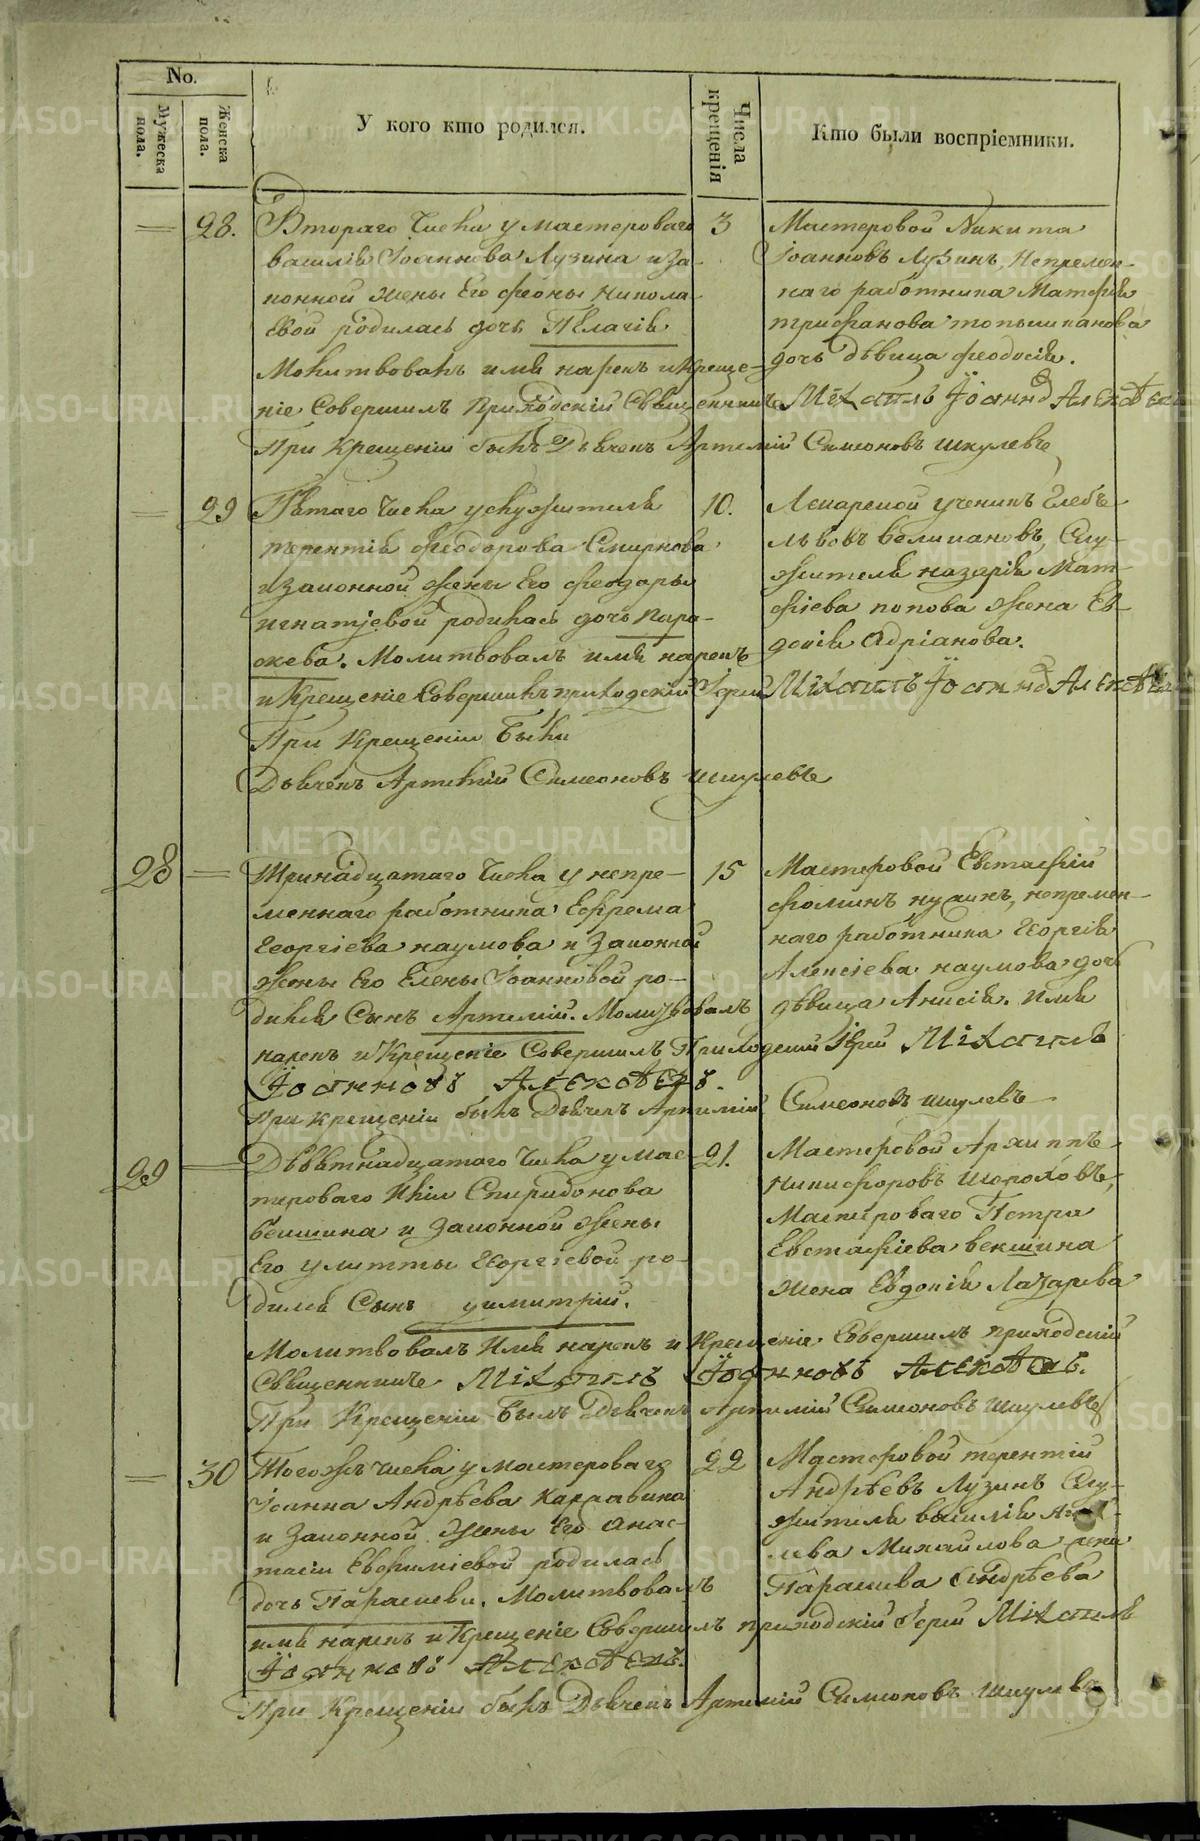 No.
Мужеска пола.
Женска пола.
У кого кто родился.
Числа крещенія
Кто были воспріемники.
28.
Втораго числа у мастероваго
василія Іоаннова Лузина и за-
конной жены Его феоны никола-
евой родилась дочь Пелагія
Молитвовалъ имя нарекъ и креще-
ніе Совершилъ Приходскій Священникъ Михаилъ Іоаннов Алексѣевъ
При Крещеніи былъ Дьячекъ Артемій Симеоновъ шкулевъ
3
Мастеровой Никита
Іоанновъ Лузинъ, Непремен-
наго работника Матфія
трифанова
дочь дѣвица феодосія.
29
Пятаго числа услужителя
терентія Феодорова Смирнова
и законной жены Его феодоры
игнатіевой родилась дочь Пара-
скева. Молитвовалъ имя нарекъ
и Крещеніе Совершилъ приходскій Іерей Михаилъ Іоаннов Алексѣевъ
При Крещеніи былъ
Дьячекъ Артемій Симеоновъ шкулевъ
10.
Лекарской ученикъ Глебъ
львовъ великановъ, Слу-
жителя назарія Мат-
фіева попова жена Ев-
докія Адріанова.
28
Тринадцатаго числа у непре-
меннаго работника Ефрема
Георгіева наумова и Законной
жены Его Елены Іоанновой ро-
дился Сынъ Артемій. Молитвовалъ
нарекъ и Крещеніе Совершилъ Приходскій Іерей Михаилъ
Іоанновъ Алексѣевъ.
При крещеніи былъ Дьячекъ Артемій Симеоновъ шкулевъ
15
Мастеровой Евстафій
фоминъ, непремен-
наго работника Георгія
Алексіева наумова дочь
дѣвица Анисія. имя
29
Девятнадцатаго числа у мас-
тероваго Спиридонова
векшина и Законной жены
Его улитты Георгіевой ро-
дился Сынъ димитрій.
Молитвовалъ Имя нарекъ и Крещеніе Совершилъ приходскій
Священникъ Михаилъ Іоанновъ Алексѣевъ.
При Крещеніи былъ Дьячекъ Артемій Симеоновъ шкулевъ
21.
Мастеровой Архиппъ
Никифоровъ шороховъ,
Мастероваго Петра
Евстафіева векшина
жена Евдокія Лазарева
30
Тогожъ числа у мастероваго
Іоанна Андрѣева Каркавина
и Законной жены Его Анас-
тасіи Евфиміевой родилась
дочь Параскева. Молитвовалъ
имя нарекъ и Крещеніе Совершилъ приходскій Іерей Михаилъ
Іоанновъ Алексѣевъ.
При Крещеніи былъ Дьячекъ Артемій Симеоновъ шкулевъ
22
Мастеровой терентій
Андрѣевъ Лузинъ Слу-
жителя василія
Михайлова жена
Параскева Андрѣева
METRIKI.GASO-URAL.RU